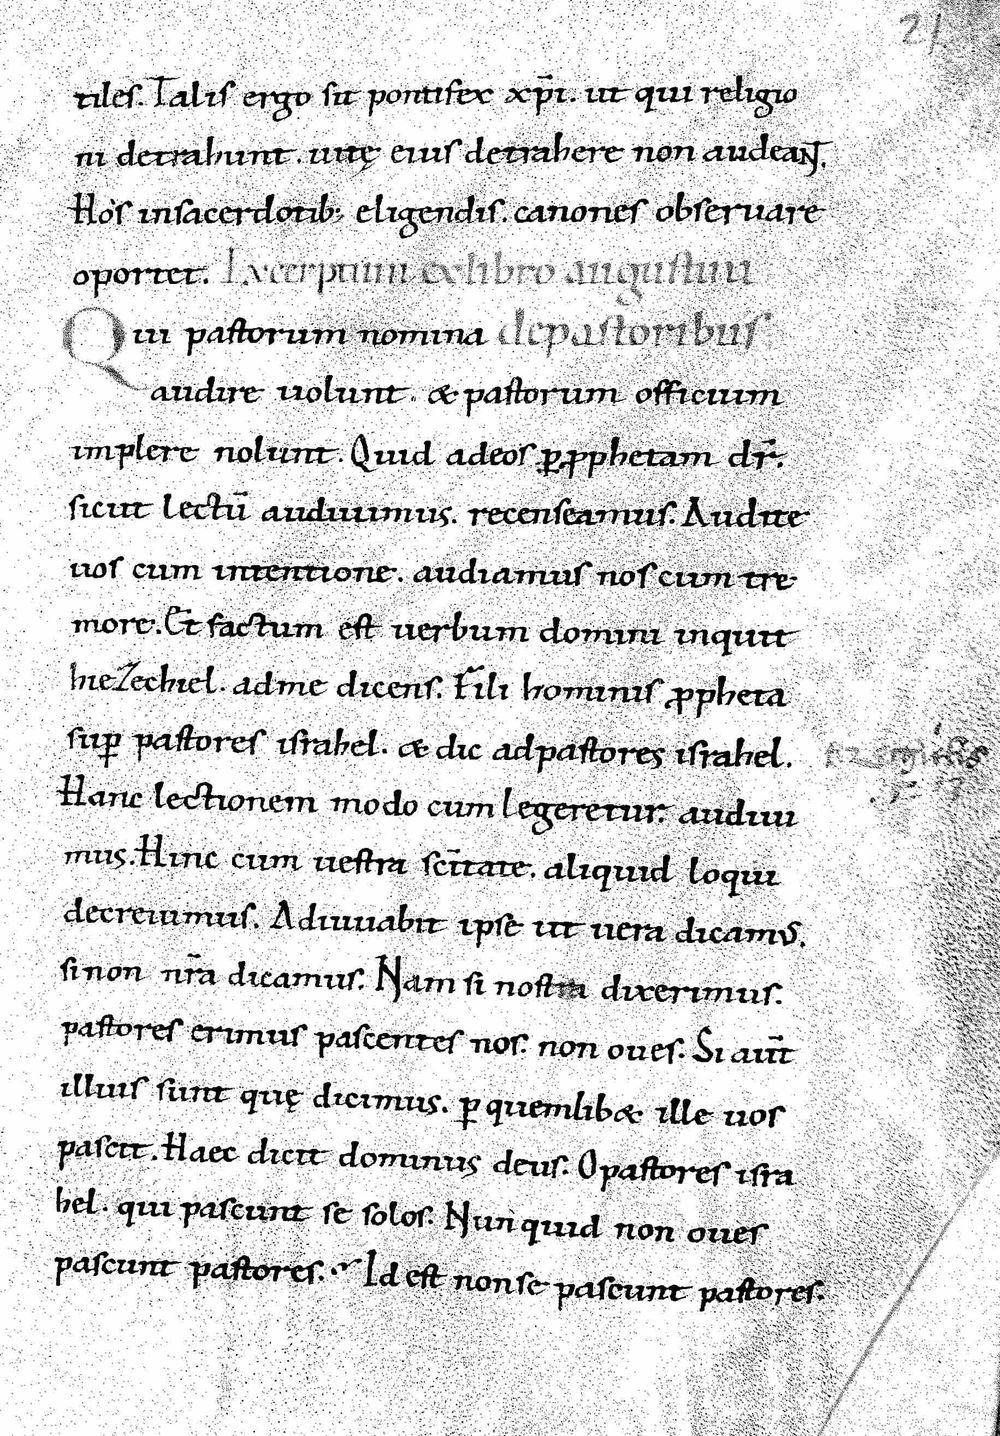 21
tiles. Talis ergo sit pontifex xp̄i. ut qui religio
ni detrahunt. uitę eius detrahere non audeaNT.
Hos insacerdotib; eligendis. canones obseruare
oportet. Excerptum exlibro augustini
Qui pastorum nomina depastoribus
audire uolunt. & pastorum officium
implere nolunt. Quid adeos ꝑꝓphetam dr̄.
sicut lectū audiuimus. recenseamus. Audite
uos cum intentione. audiamus nos cum tre
more. Et factum est uerbum domini inquit
hieZechiel. adme dicens. Fili hominis ꝓpheta
suꝑ pastores israhel. & dic adpastores israhel.
Hanc lectionem modo cum legeretur. audiui
mus. Hinc cum uestra sc̄itate. aliquid loqui
decreuimus. Adiuuabit ipse ut uera dicamus.
si non nr̄a dicamus. Nam si nostra dixerimus.
pastores erimus pascentes nos. non oues. Si aut̄
illius sunt quę dicimus. ꝑ quemlib& ille uos
pascit. Haec dicit dominus deus. O pastores isra
hel. qui pascunt se solos. Nunquid non oues
pascunt pastores. Id est non se pascunt pastores.